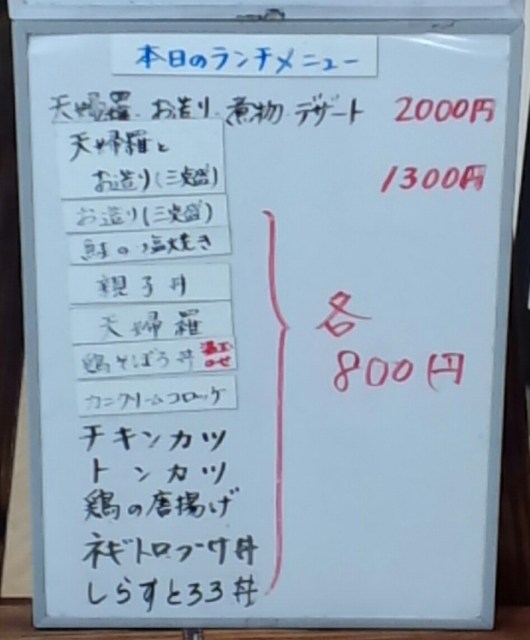 本日のランチメニュー
天婦羅・お造り・煮物・デザート 2000円
天婦羅と
お造り(三点盛) 1300円
お造り(三点盛)
鮭の塩焼き
親子丼
天婦羅
鶏そぼろ丼 温玉のせ
カニクリームコロッケ
各
800円
チキンカツ
トンカツ
鶏の唐揚げ
ネギトロブツ丼
しらすとろろ丼